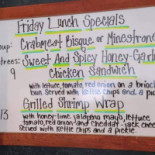 Friday Lunch Specials
Crabmeat Bisque or Minestrone
Sweet And Spicy Honey-Garl
chicken sandwich
with lettuce, tomato, red onion on a brioch
bun. Served with kettle chips and a pickle
Grilled Shrimp Wrap
with honey-lime jalapeno mayo, lettuce
tomato, red onion, and cheddar jack cheese
Served with kettle chips and a pickle